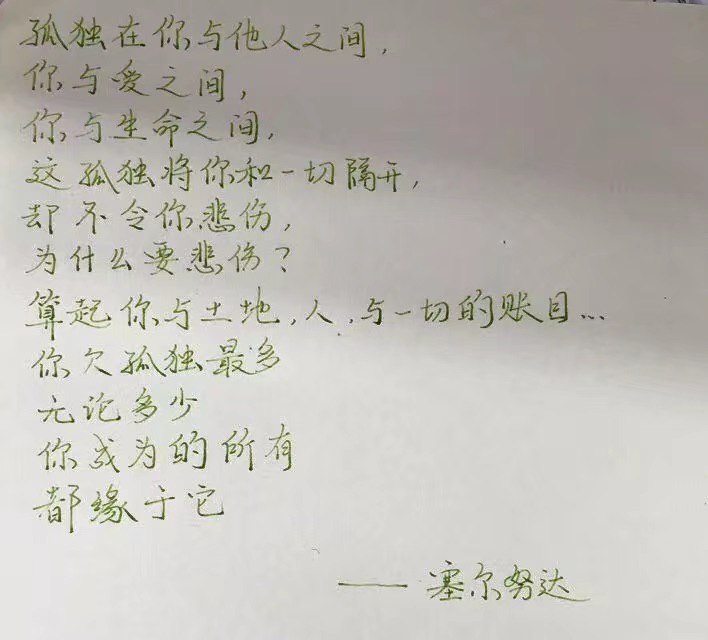 孤独在你与他人之间,
你与爱之间,
你与生命之间,
这孤独将你和一切隔开,
却不令你悲伤,
为什么要悲伤?
算起你与土地,人,与一切的账目...
你欠孤独最多
无论多少
你成为的所有
都缘于它
—— 塞尔努达